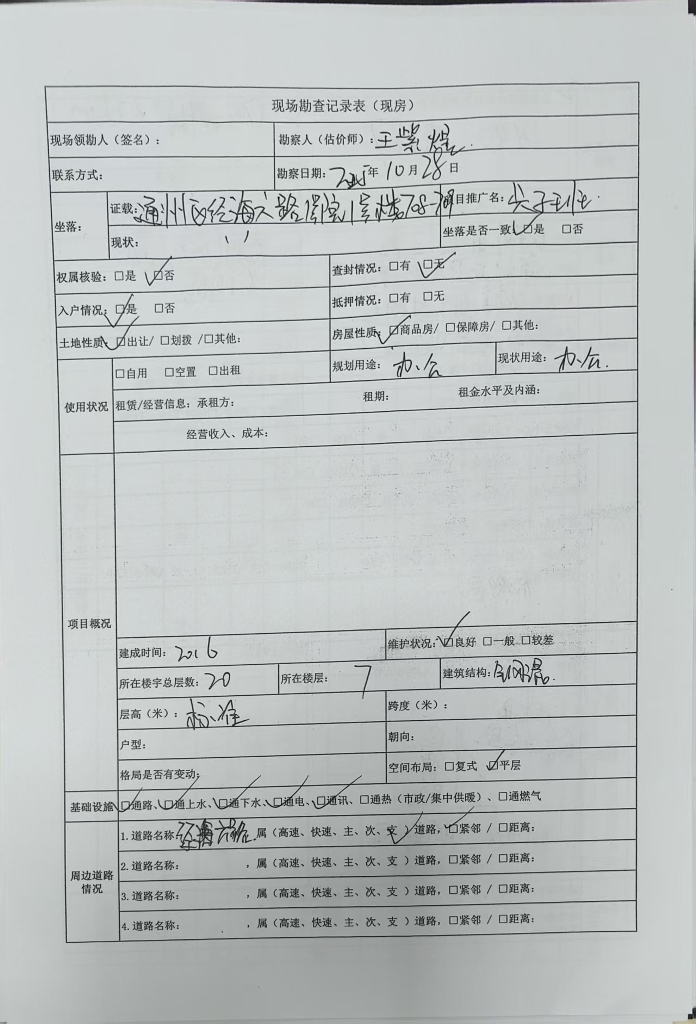 现场勘查记录表（现房）
现场领勘人（签名）： 勘察人（估价师）：王紫煜
联系方式： 勘察日期：2025年10月28日
坐落： 证载：通州区经海六路 院1号楼708-709 项目推广名：
现状：〃 坐落是否一致☑是 □否
权属核验：□是 ☑否 查封情况：□有 ☑无
入户情况：☑是 □否 抵押情况：□有 □无
土地性质：☑出让/ □划拨 /□其他： 房屋性质：☑商品房/ □保障房/ □其他：
使用状况 □自用 □空置 □出租 规划用途：办公 现状用途：办公.
租赁/经营信息：承租方： 租期： 租金水平及内涵：
经营收入、成本：
项目概况
建成时间：2016 维护状况：☑良好 □一般 □较差
所在楼宇总层数：20 所在楼层：7 建筑结构：钢混.
层高（米）：标准 跨度（米）：
户型： 朝向：
格局是否有变动： 空间布局：□复式 ☑平层
基础设施 ☑通路、☑通上水、☑通下水、☑通电、☑通讯、□通热（市政/集中供暖）、□通燃气
周边道路情况 1.道路名称：经海六路，属（高速、快速、主、次、支 ）道路，☑紧邻 / □距离：
2.道路名称： ，属（高速、快速、主、次、支 ）道路，□紧邻 / □距离：
3.道路名称： ，属（高速、快速、主、次、支 ）道路，□紧邻 / □距离：
4.道路名称： ，属（高速、快速、主、次、支 ）道路，□紧邻 / □距离：